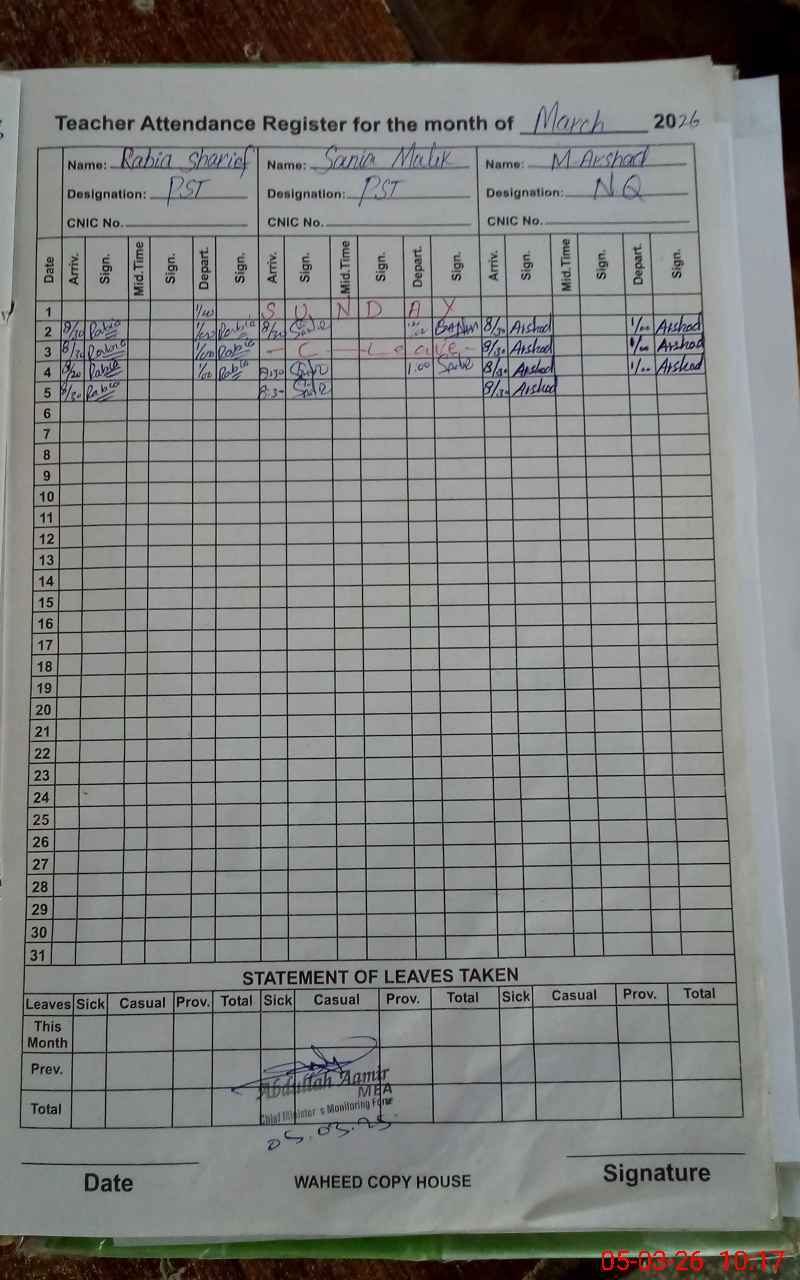 Teacher Attendance Register for the month of March 2026
Name: Rabia Sharief Name: Sania Malik Name: M. Arshad
Designation: PST Designation: PST Designation: NQ
CNIC No. CNIC No. CNIC No.
Date Arriv. Sign. Mid.Time Sign. Depart. Sign. Arriv. Sign. Mid.Time Sign. Depart. Sign. Arriv. Sign. Mid.Time Sign. Depart. Sign.
1 S U N D A Y
2 8/30 Rabia 1/00 Rabia 8/30 8/30 Arshad 1/00 Arshad
3 8/30 Rabia 1/00 Rabia - C - Leave - 8/30 Arshad 1/00 Arshad
4 8/30 Rabia 1/00 Rabia 8:30 1:00 8/30 Arshad 1/00 Arshad
5 8/30 Rabia 8:30 8/30 Arshad
6
7
8
9
10
11
12
13
14
15
16
17
18
19
20
21
22
23
24
25
26
27
28
29
30
31
STATEMENT OF LEAVES TAKEN
Leaves Sick Casual Prov. Total Sick Casual Prov. Total Sick Casual Prov. Total
This Month
Prev.
Total
Abdullah Aamir
MEA
Chief Minister's Monitoring Force
05.03.25
Date WAHEED COPY HOUSE Signature
05-03-26 10:17